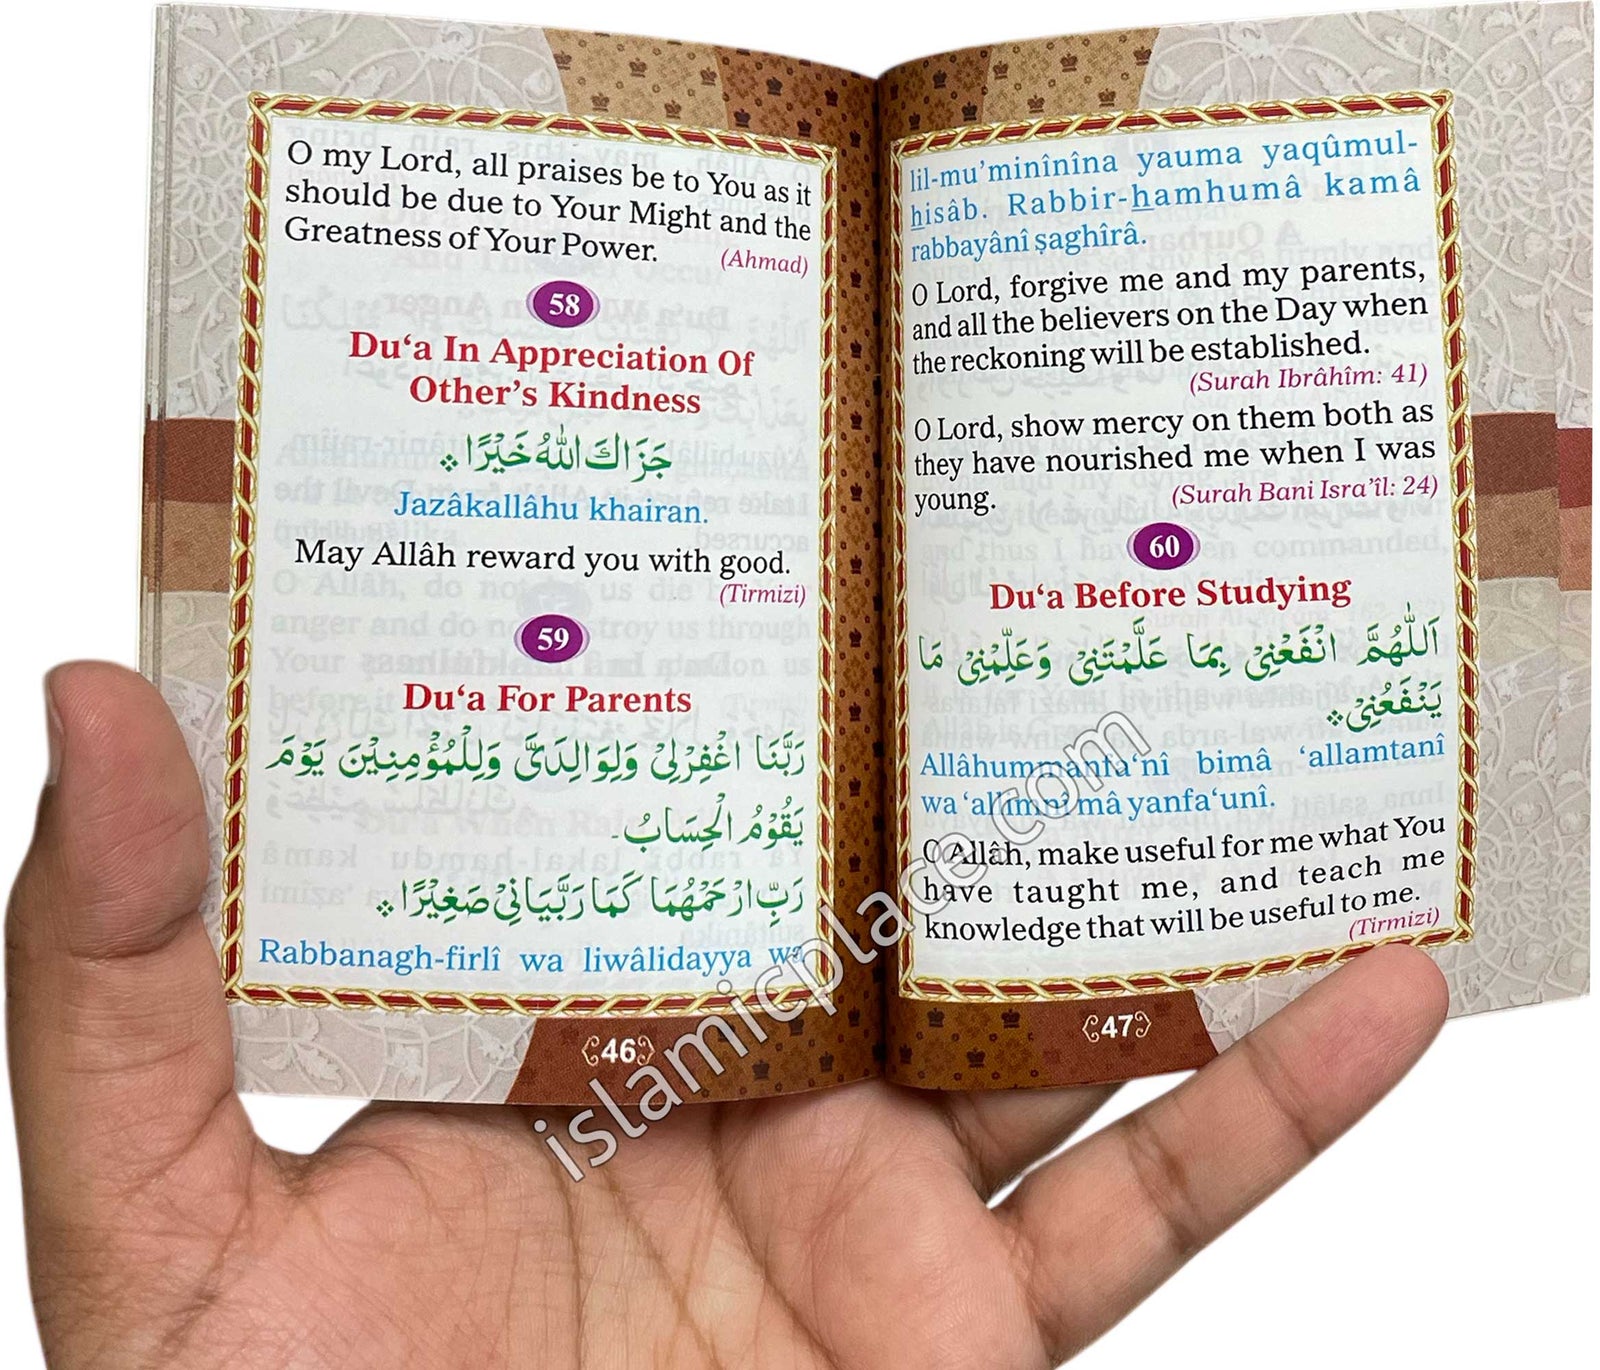 O my Lord, all praises be to You as it
should be due to Your Might and the
Greatness of Your Power.
(Ahmad)
58
Du‘a In Appreciation Of
Other’s Kindness
جَزَاكَ اللّٰهُ خَيْرًا ⁘
Jazâkallâhu khairan.
May Allâh reward you with good.
(Tirmizi)
59
Du‘a For Parents
رَبَّنَا اغْفِرْلِيْ وَلِوَالِدَيَّ وَلِلْمُؤْمِنِيْنَ يَوْمَ
يَقُوْمُ الْحِسَابُ۔
رَبِّ ارْحَمْهُمَا كَمَا رَبَّيَانِيْ صَغِيْرًا ⁘
Rabbanagh-firlî wa liwâlidayya wa
46
lil-mu’minînîna yauma yaqûmul-
ḥisâb. Rabbir-ḥamhumâ kamâ
rabbayânî ṣaghîrâ.
O Lord, forgive me and my parents,
and all the believers on the Day when
the reckoning will be established.
(Surah Ibrâhîm: 41)
O Lord, show mercy on them both as
they have nourished me when I was
young.
(Surah Bani Isra’îl: 24)
60
Du‘a Before Studying
اَللّٰهُمَّ انْفَعْنِيْ بِمَا عَلَّمْتَنِيْ وَعَلِّمْنِيْ مَا
يَنْفَعُنِيْ ⁘
Allâhummanfa‘nî bimâ ‘allamtanî
wa ‘allimnî mâ yanfa‘unî.
O Allâh, make useful for me what You
have taught me, and teach me
knowledge that will be useful to me.
(Tirmizi)
47
islamicplace.com